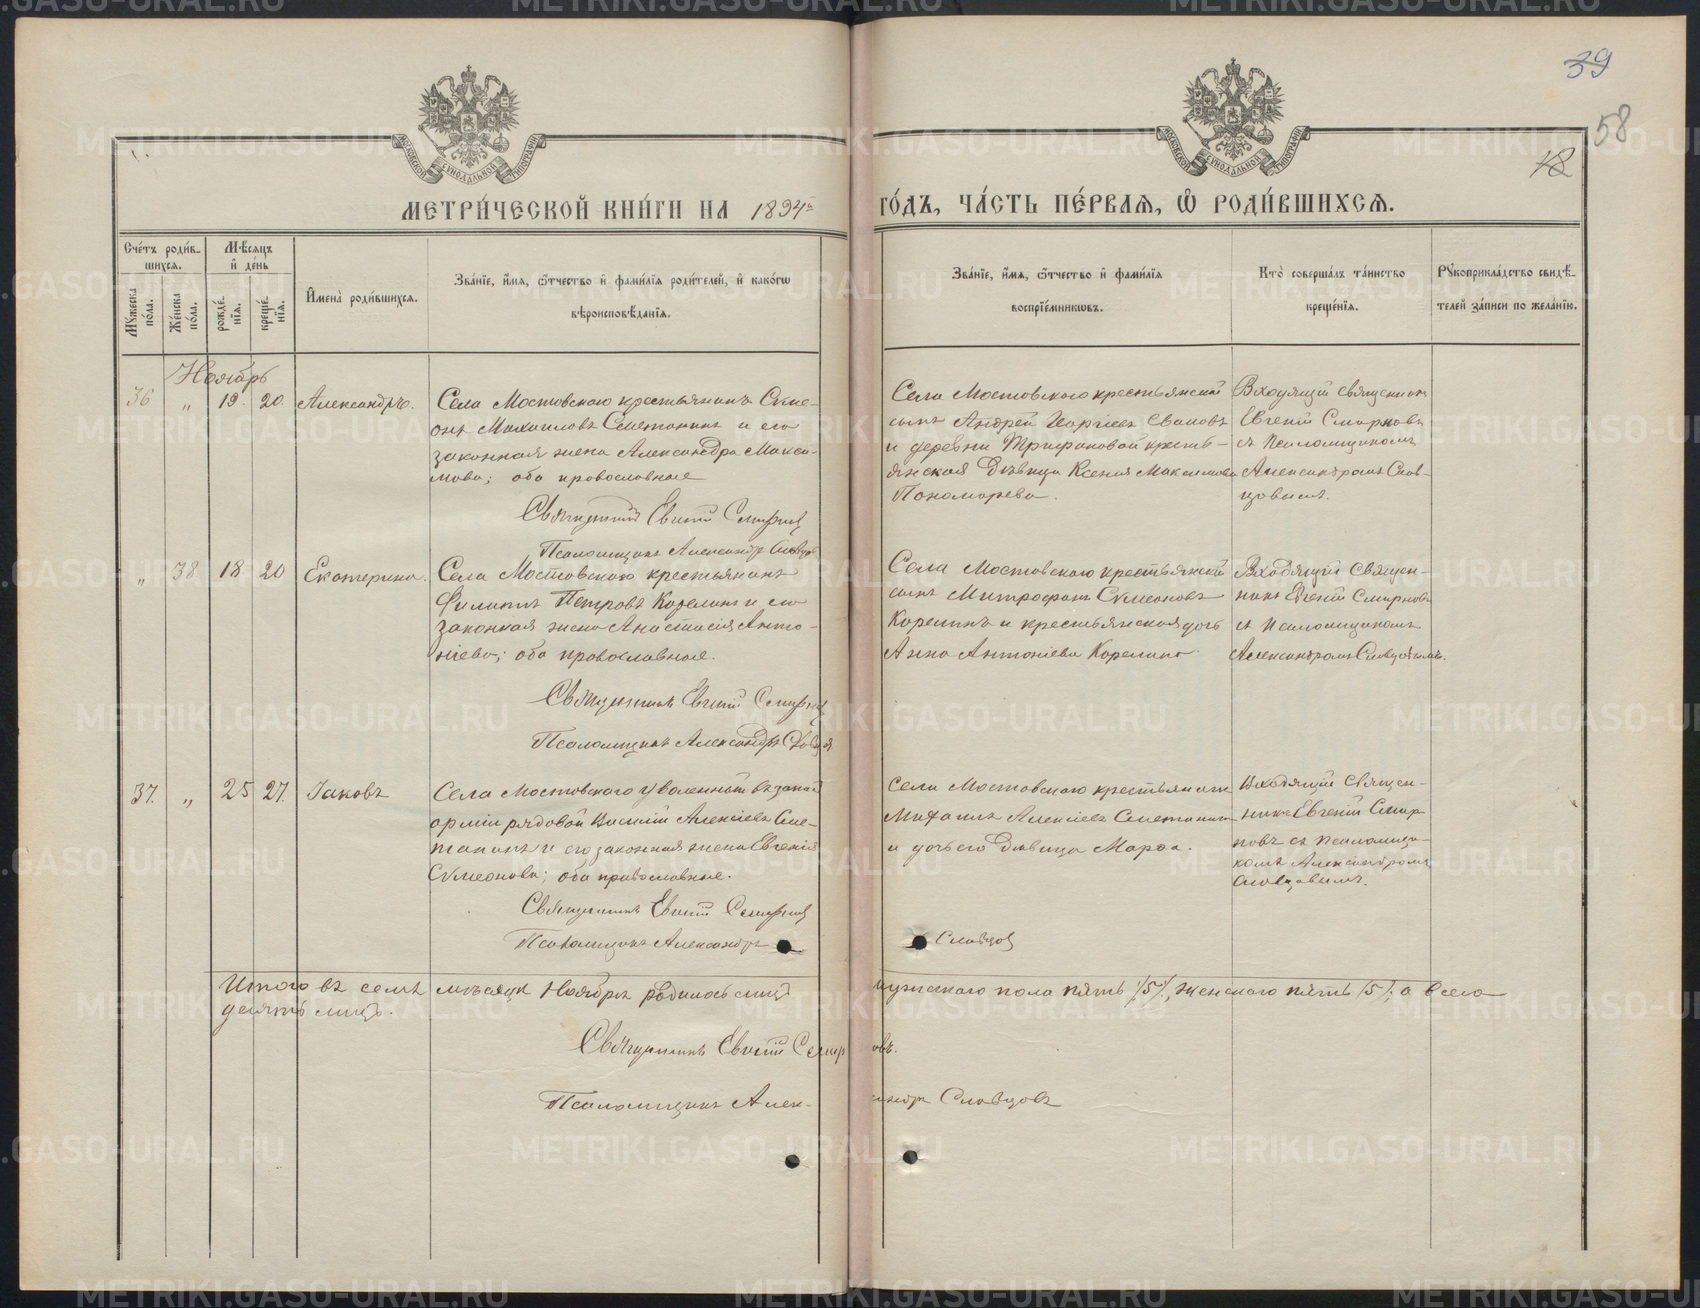 39
58
18
МОСКОВСКОЙ СѴНОДАЛЬНОЙ ТИПОГРАФІИ
МОСКОВСКОЙ СѴНОДАЛЬНОЙ ТИПОГРАФІИ
МЕТРИ́ЧЕСКОЙ КНИ́ГИ НА 1894 ГО́ДЪ, ЧА́СТЬ ПЕ́РВАѦ, Ѡ҆ РОДИ́ВШИХСѦ.
Сче́тъ роди́в-
шихсѧ.
Мꙋжеска по́ла.
Же́нска по́ла.
Мѣ́сѧцъ
и҆ де́нь
рожде́нїѧ.
креще́нїѧ.
И҆мена̀ роди́вшихсѧ.
Зва́нїе, и҆́мѧ, ѻ҆́тчество и҆ фами́лїѧ роди́телей, и҆ како́гѡ
вѣроисповѣ́данїѧ.
Зва́нїе, и҆́мѧ, ѻ҆́тчество и҆ фами́лїѧ
воспрїе́мникѡвъ.
Кто̀ соверша́лъ та́инство
креще́нїѧ.
Рꙋкоприкла́дство свидѣ́-
телей за́писи по жела́нїю.
Ноябрь
36 „ 19. 20. Александръ.
Села Мостовскаго крестьянинъ Сѵме-
онъ Михаиловъ Сметанинъ и его
законная жена Александра Макси-
мова; оба православные
Священникъ Евгеній Смирновъ
Псаломщикъ Александръ Словцовъ
Села Мостовскаго крестьянскій
сынъ Андрей Георгіевъ
и деревни Трифановой кресть-
янская дѣвица Ксенія Максимова
Пономарева.
Входящій священникъ
Евгеній Смирновъ
съ псаломщикомъ
Александромъ Слов-
цовымъ.
„ 38 18 20 Екатерина.
Села Мостовскаго крестьянинъ
Филиппъ Петровъ Карелинъ и его
законная жена Анастасія Анто-
ніева; оба православные.
Священникъ Евгеній Смирновъ
Псаломщикъ Александръ Словцовъ
Села Мостовскаго крестьянскій
сынъ Митрофанъ Сѵмеоновъ
Карелинъ и крестьянская дочь
Анна Антоніева Карелина.
Входящій священ-
никъ Евгеній Смирновъ
съ псаломщикомъ
Александромъ Словцовымъ.
37. „ 25 27. Іаковъ
Села Мостовскаго уволенный въ запасъ
арміи рядовой Василій Алексіевъ Сме-
танинъ и его законная жена Евгенія
Сѵмеонова; оба православные.
Священникъ Евгеній Смирновъ
Псаломщикъ Александръ Словцовъ
Села Мостовскаго крестьянинъ
Михаилъ Алексіевъ Сметанинъ
и дочь его дѣвица Марѳа.
Входящій священ-
никъ Евгеній Смир-
новъ съ псаломщи-
комъ Александромъ
Словцовымъ.
Итого въ семъ мѣсяцѣ Ноябрѣ родилось лицъ мужскаго пола пять /5/, женскаго пять /5/; а всего
десять лицъ.
Священникъ Евгеній Смирновъ.
Псаломщикъ Александръ Словцовъ
METRIKI.GASO-URAL.RU